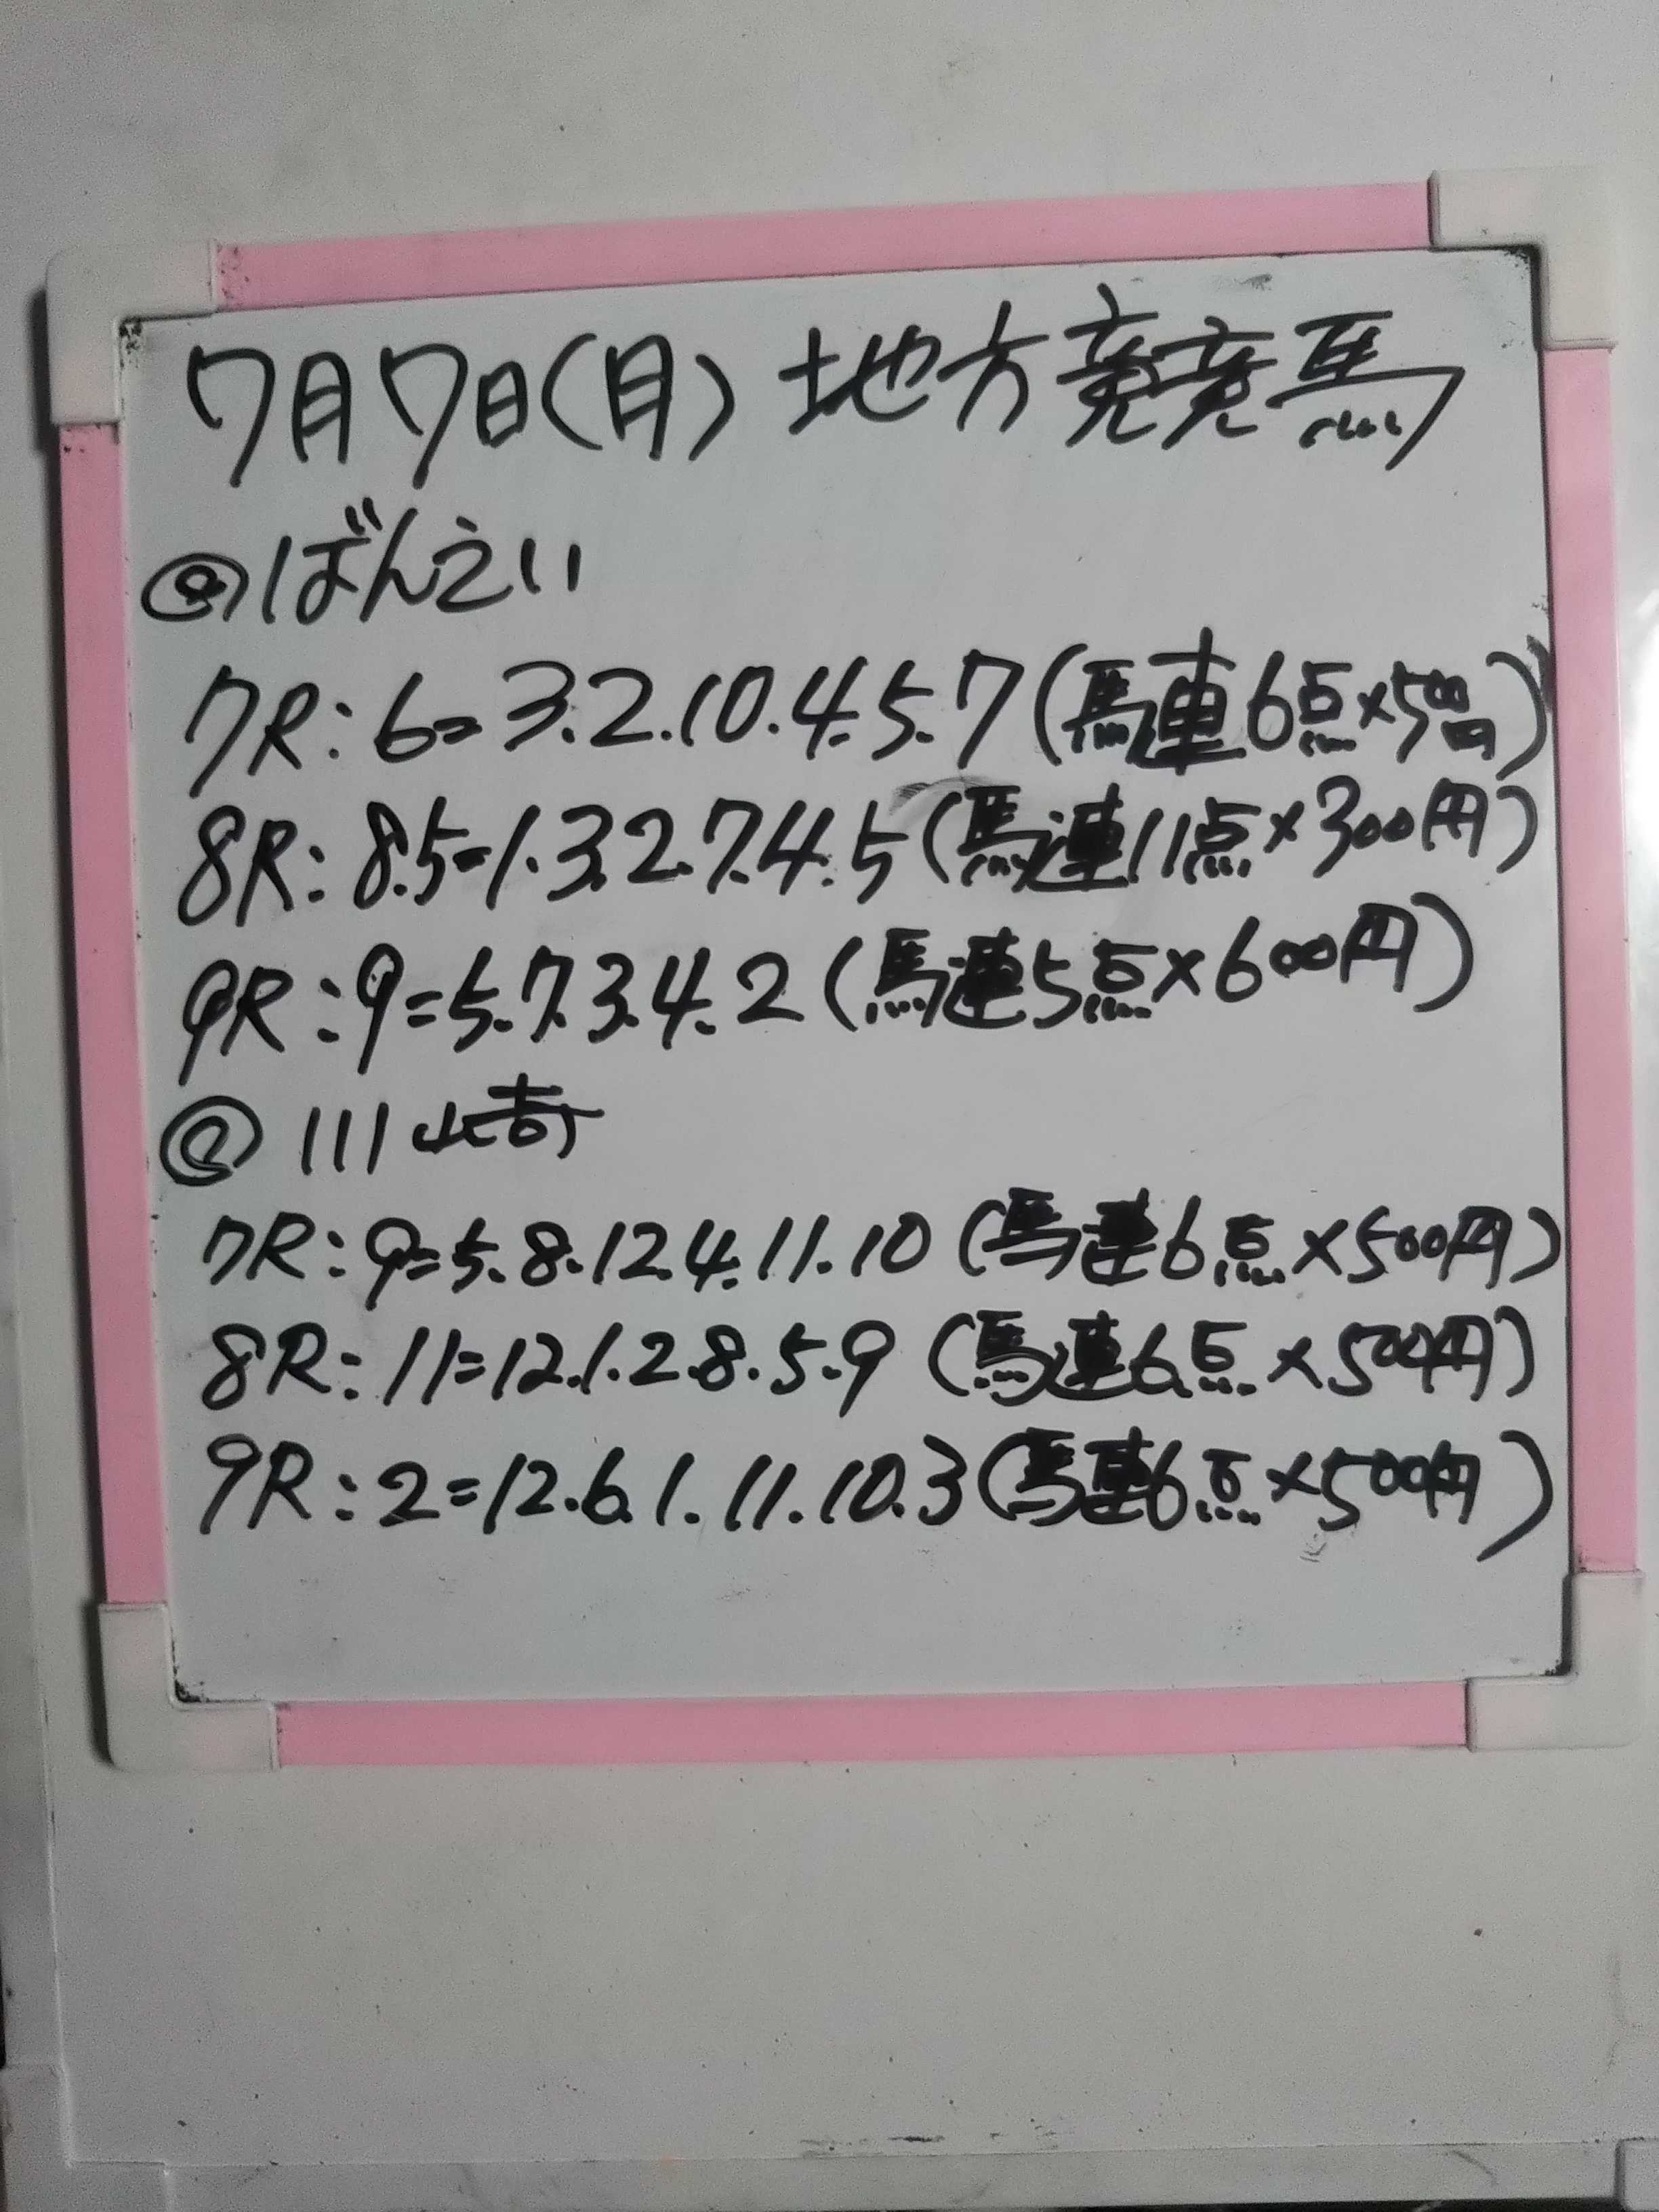 7月7日(月)地方競馬
◎ばんえい
7R:6=3.2.10.4.5.7(馬連6点×500円)
8R:8.5=1.3.2.7.4.5(馬連11点×300円)
9R:9=5.7.3.4.2(馬連5点×600円)
◎川崎
7R:9=5.8.12.4.11.10(馬連6点×500円)
8R:11=12.1.2.8.5.9(馬連6点×500円)
9R:2=12.6.1.11.10.3(馬連6点×500円)